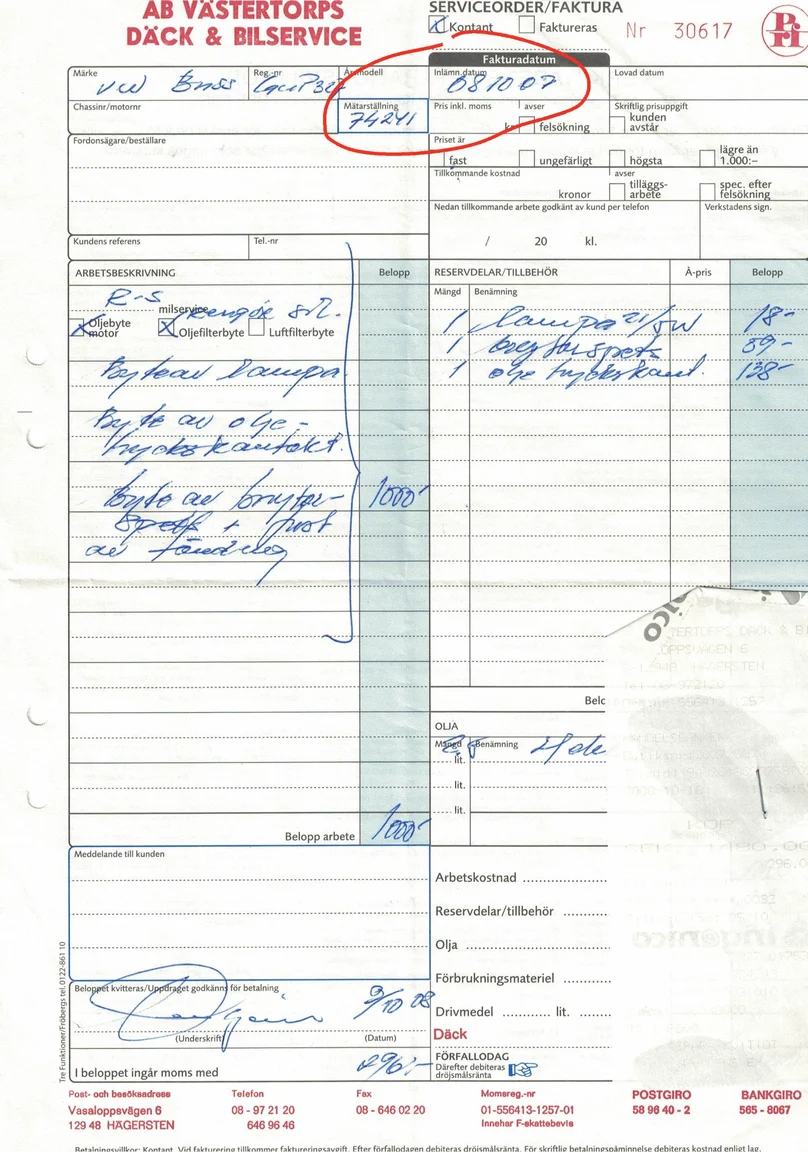 AB VÄSTERTORPS
DÄCK & BILSERVICE
SERVICEORDER/FAKTURA
Kontant Faktureras
Nr 30617
Fakturadatum
Märke Reg.-nr Årsmodell Inlämn.datum Lovad datum
VW Buss 081007
Chassinr/motornr Mätarställning Pris inkl. moms avser Skriftlig prisuppgift
74241 kr felsökning kunden avstår
Fordonsägare/beställare Priset är
fast ungefärligt högsta lägre än 1.000:–
Tillkommande kostnad avser
kronor tilläggs-arbete spec. efter felsökning
Nedan tillkommande arbete godkänt av kund per telefon Verkstadens sign.
/ 20 kl.
Kundens referens Tel.-nr
ARBETSBESKRIVNING Belopp RESERVDELAR/TILLBEHÖR À-pris Belopp
Mängd Benämning
R-S
milservice
Oljebyte motor Oljefilterbyte Luftfilterbyte
1 lampa 21/5W 18-
1 brytarspets 89-
1 olje tryckskont. 138-
Byte av lampa
Byte av olje-
tryckskontakt.
Byte av brytar- 1000-
spets + just
av tändning
OLJA
Mängd Benämning
lit.
lit.
lit.
Belopp arbete 1000-
Meddelande till kunden
Arbetskostnad
Reservdelar/tillbehör
Olja
Förbrukningsmateriel
Drivmedel lit.
Däck
Beloppet kvitteras/Uppdraget godkänns för betalning
9/10 08
(Underskrift) (Datum)
FÖRFALLODAG
Därefter debiteras
dröjsmålsränta
I beloppet ingår moms med 296:-
Tre Funktioner/Fröbergs tel. 0122-861 10
Post- och besöksadress Telefon Fax Momsreg.-nr POSTGIRO BANKGIRO
Vasaloppsvägen 6 08 - 97 21 20 08 - 646 02 20 01-556413-1257-01 58 96 40 - 2 565 - 8067
129 48 HÄGERSTEN 646 96 46 Innehar F-skattebevis
Betalningsvillkor: Kontant. Vid fakturering tillkommer faktureringsavgift. Efter förfallodagen debiteras dröjsmålsränta. För skriftlig betalningspåminnelse debiteras kostnad enligt lag.